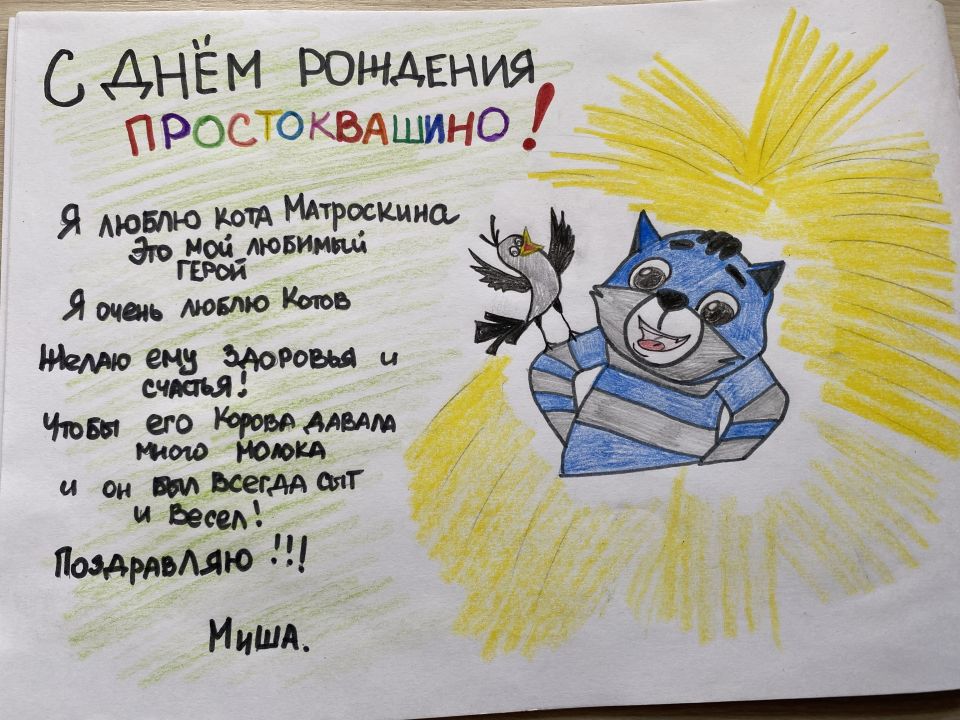 С ДНЁМ РОЖДЕНИЯ
ПРОСТОКВАШИНО!
Я люблю кота Матроскина
Это мой любимый
герой
Я очень люблю Котов
Желаю ему здоровья и
счастья!
Чтобы его Корова давала
много молока
и он был всегда сыт
и весел!
Поздравляю!!!
Миша.